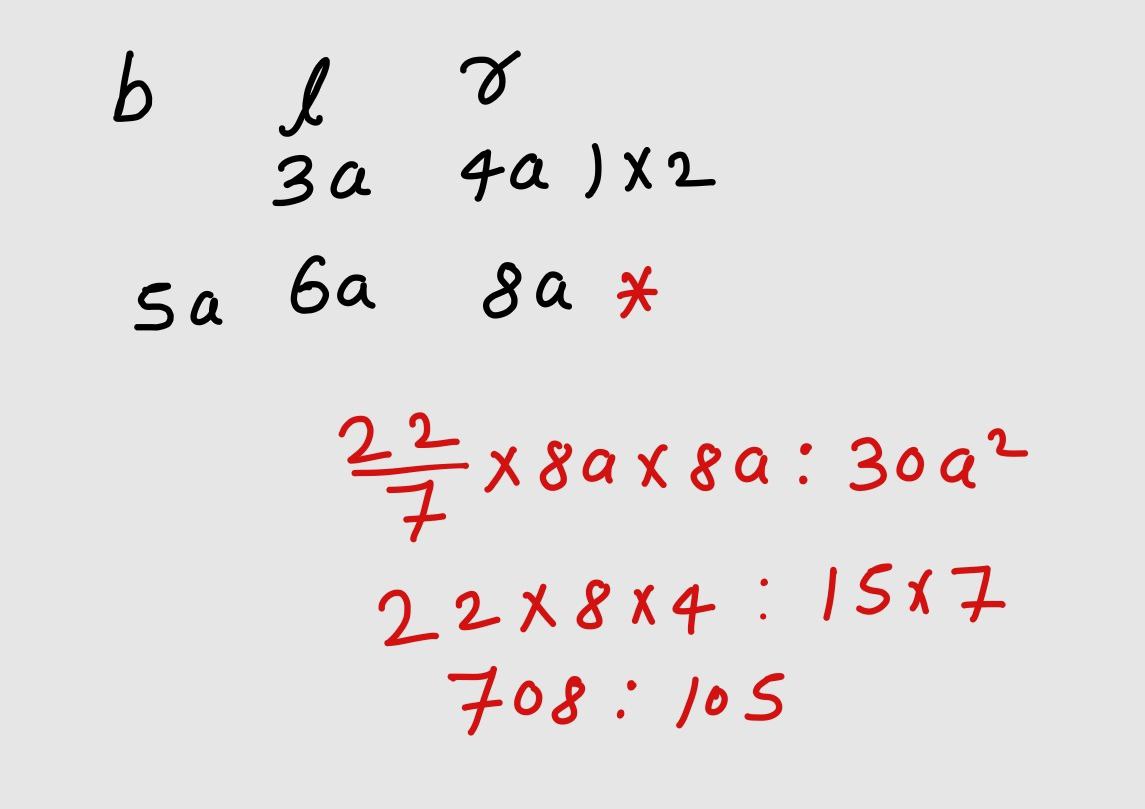 b l r
3a 4a ) x 2
5a 6a 8a *
22/7 x 8a x 8a : 30a²
22 x 8 x 4 : 15 x 7
708 : 105